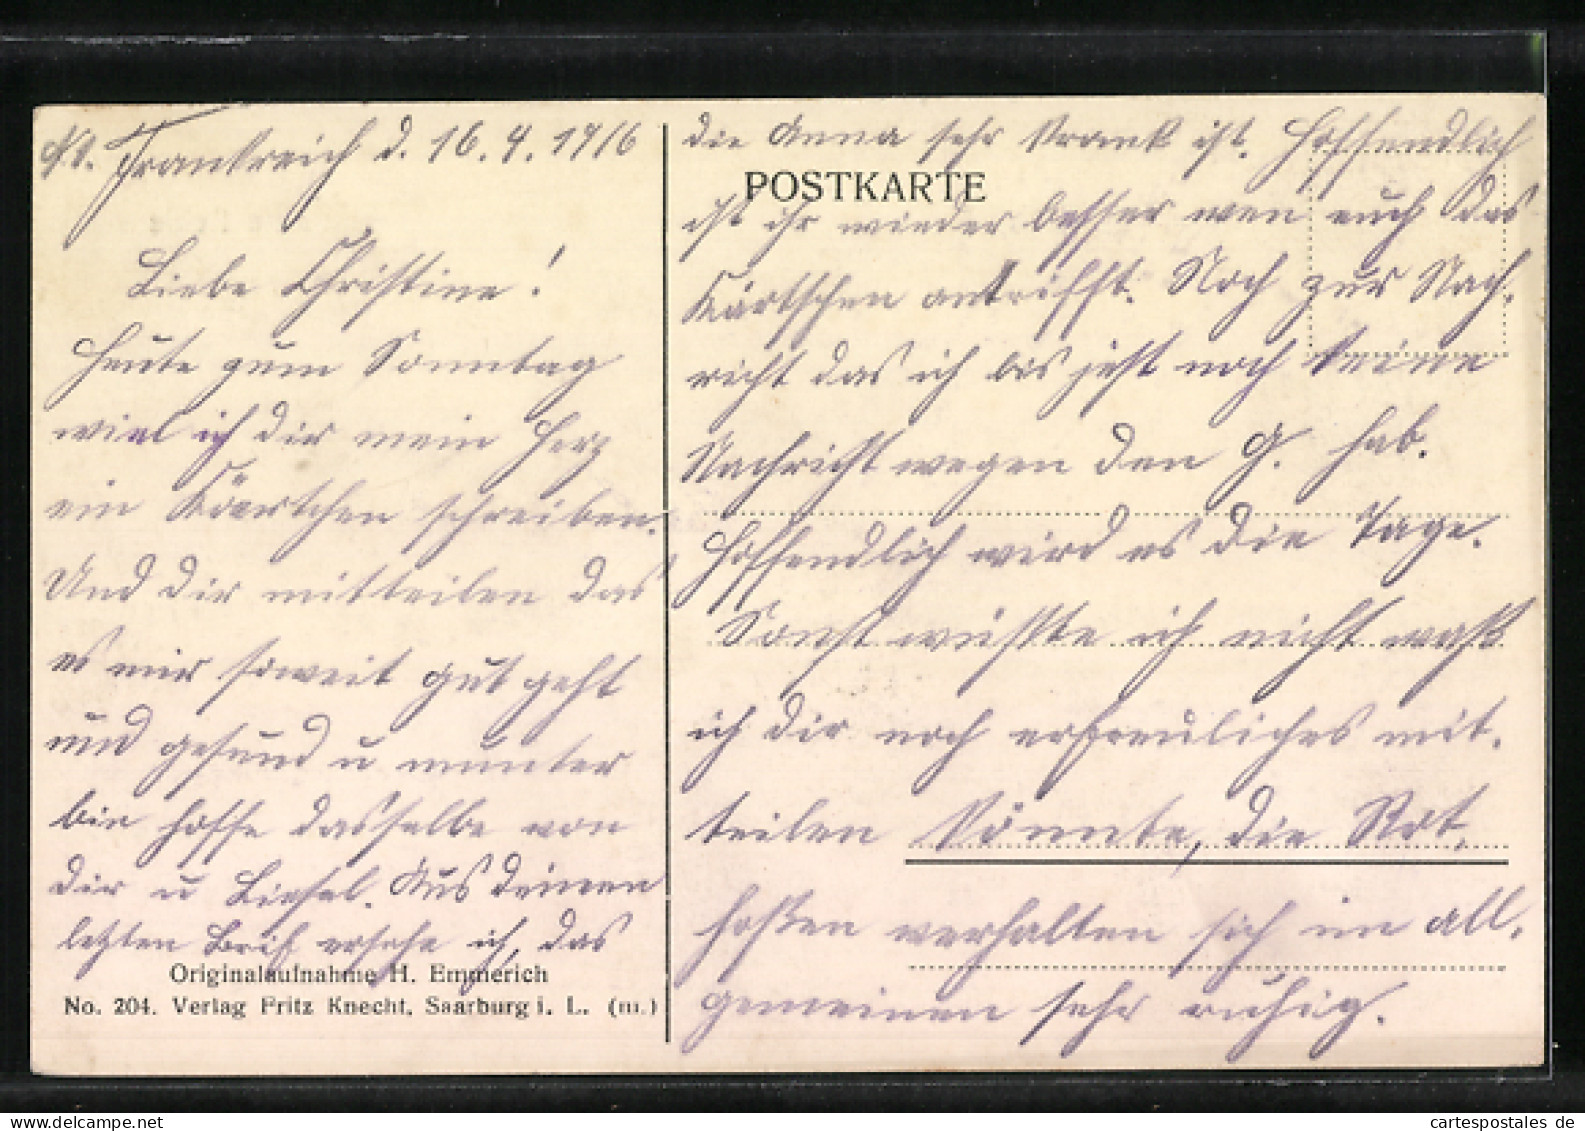 Frankreich d. 16.4.1916
Liebe Christine!
Heute zum Sonntag
wiel ich dir mein Herz
ein Käertchen schreiben.
Und dir mitteilen das
es mir soweit gut geht
und gesund u munter
bin hoffe dasselbe von
dir u Liesel. Aus deinen
letzten Brif ersehe ich, das
Originalaufnahme H. Emmerich
No. 204. Verlag Fritz Knecht, Saarburg i. L. (m.)
die Anna sehr krank ist. Hoffendlich
POSTKARTE
ist ihr wieder besser wen euch das
Kärtschen antrifft. Noch zur Nach-
richt das ich bis jetzt noch keine
Nachricht wegen den G. hab.
Hoffendlich wird es die Tage.
Sonst wüßte ich nicht waß
ich dir noch erfreuliches mit-
teilen könnte, die Rot-
hoßen verhalten sich im all-
gemeinen sehr ruhig.
cartespostales de